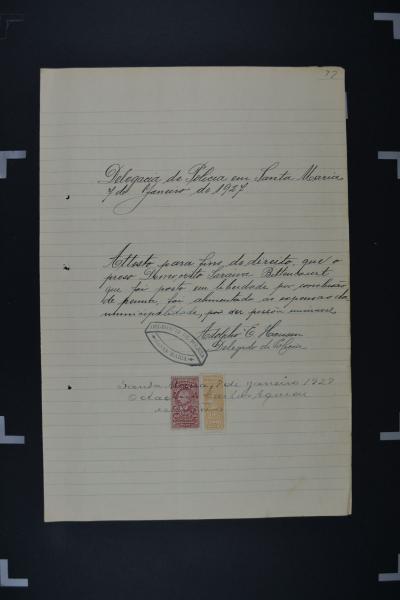 Delegacia de Policia em Santa Maria
7 de Janeiro de 1927
Attesto para fins de direito, que o
preso Saraiva Bittencourt
que foi posto em liberdade por conclusão
de penna, foi alimentado ás expensas da
municipalidade, por ser pessôa
Adolpho
Delegado de Policia
DELEGACIA DE POLICIA
SANTA MARIA
Santa Maria, 8 de janeiro 1927